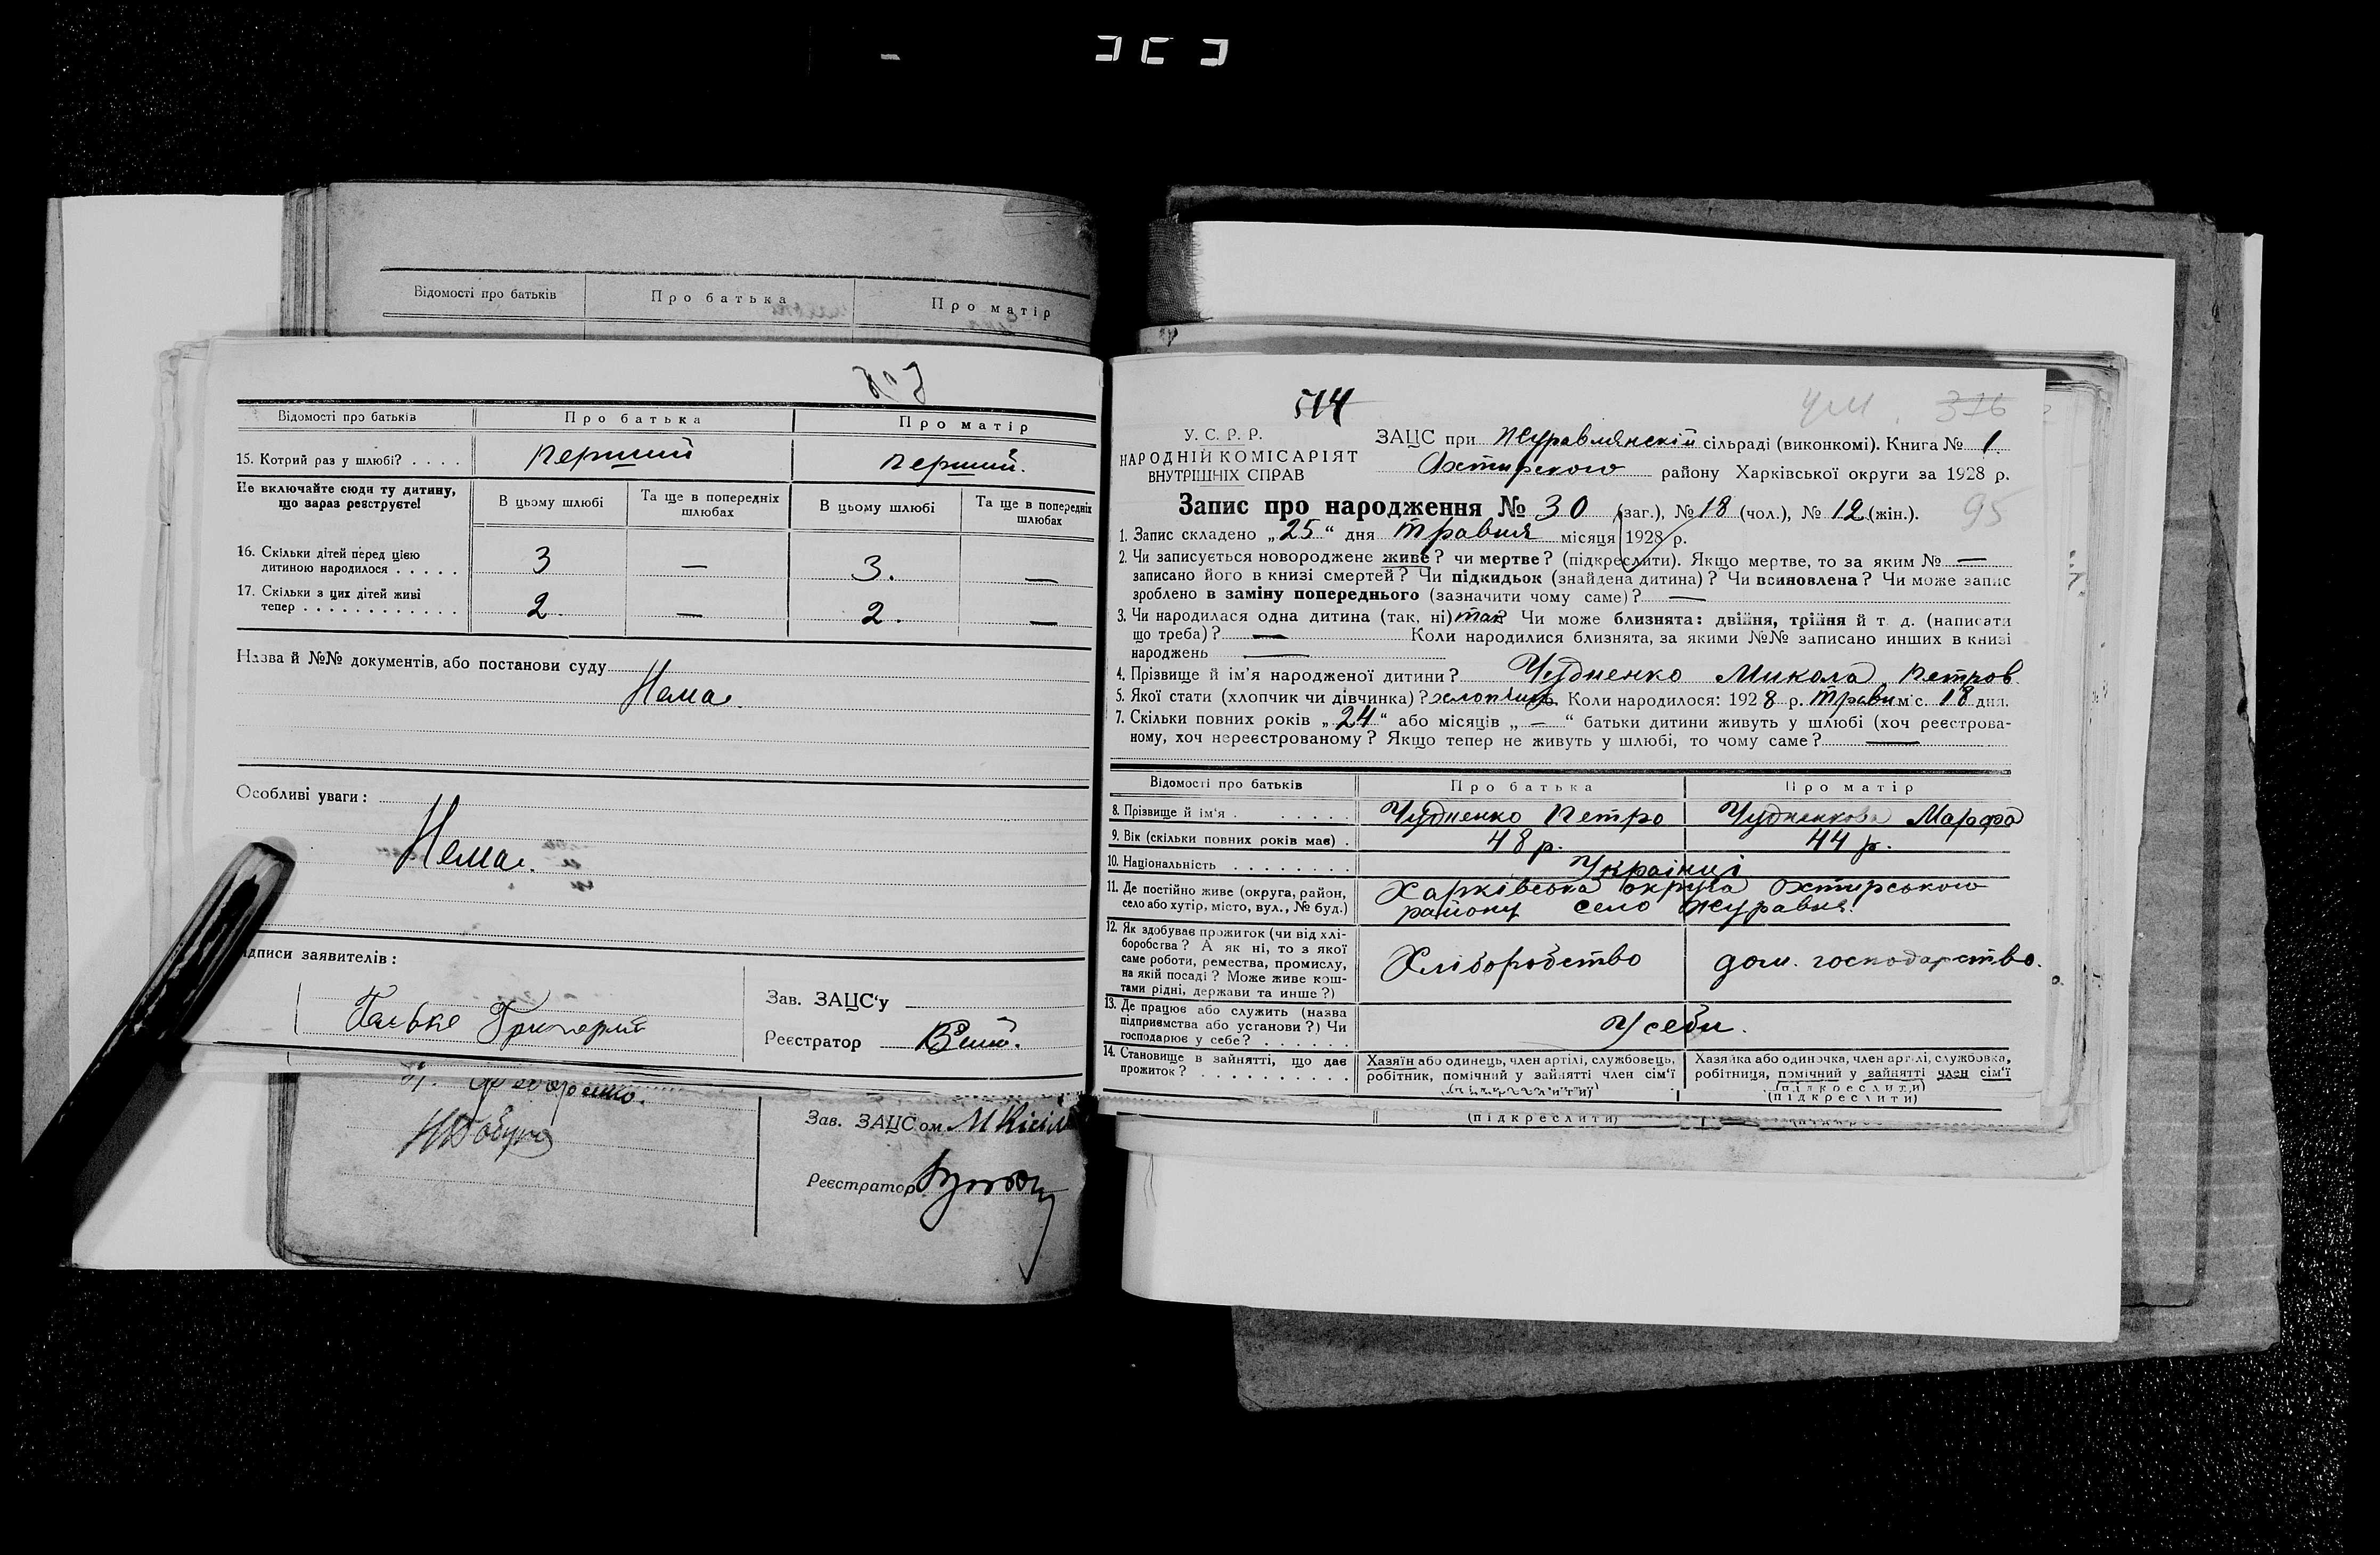 Відомості про батьків
Про батька
Про матір
Відомості про батьків
Про батька
Про матір
15. Котрий раз у шлюбі? . . . .
перший
перший.
Не включайте сюди ту дитину,
що зараз реєструєте!
В цьому шлюбі
Та ще в попередніх
шлюбах
В цьому шлюбі
Та ще в попередніх
шлюбах
16. Скільки дітей перед цією
дитиною народилося . . . . .
3
—
3.
—
17. Скільки з цих дітей живі
тепер . . . . . . . . . . . .
2
—
2.
—
Назва й №№ документів, або постанови суду
Нема.
Особливі уваги:
Нема.
дписи заявителів:
Григорий
Зав. ЗАЦС'у
Реєстратор
Зав. ЗАЦСом
Реєстратор
514
316
95
У. С. Р. Р.
НАРОДНІЙ КОМІСАРІЯТ
ВНУТРІШНІХ СПРАВ
ЗАЦС при Журавлянскій сільраді (виконкомі). Книга № 1.
Охтирского району Харківської округи за 1928 р.
Запис про народження № 30 (заг.), № 18 (чол.), № 12 (жін.).
1. Запис складено „25“ дня травня місяця 1928 р.
2. Чи записується новороджене живе? чи мертве? (підкреслити). Якщо мертве, то за яким № —
записано його в книзі смертей? Чи підкидьок (знайдена дитина)? Чи всиновлена? Чи може запис
зроблено в заміну попереднього (зазначити чому саме)? —
3. Чи народилася одна дитина (так, ні) так? Чи може близнята: двійня, трійня й т. д. (написати
що треба)? — Коли народилися близнята, за якими №№ записано инших в книзі
народжень —
4. Прізвище й ім'я народженої дитини? Чудненко Микола Петров.
5. Якої статі (хлопчик чи дівчинка)? хлопчик. Коли народилося: 1928 р. травн міс. 18 дня.
7. Скільки повних років „24“ або місяців „—“ батьки дитини живуть у шлюбі (хоч реєстрова-
ному, хоч нереєстрованому? Якщо тепер не живуть у шлюбі, то чому саме? —
Відомості про батьків
Про батька
Про матір
8. Прізвище й ім'я . . . . . .
Чудненко Петро
Чудненкова Марфа
9. Вік (скільки повних років має) .
48 р.
44 р.
10. Національність . . . . . . . .
Українці
11. Де постійно живе (округа, район,
село або хутір, місто, вул., № буд.)
Харківська округа Охтирського
району село Журавня.
12. Як здобуває прожиток (чи від хлі-
боробства? А як ні, то з якої
саме роботи, ремества, промислу,
на якій посаді? Може живе кош-
тами рідні, держави та инше?)
Хліборобство
дом. господарство.
13. Де працює або служить (назва
підприємства або установи?) Чи
господарює у себе? . . . . . .
У себи.
14. Становище в зайнятті, що дає
прожиток? . . . . . . . . . .
Хазяїн або одинець, член артілі, службовець,
робітник, помічний у зайнятті член сім'ї
(підкреслити)
Хазяйка або одиночка, член артілі, службовка,
робітниця, помічний у зайнятті член сім'ї
(підкреслити)
(підкреслити)
(підкреслити)